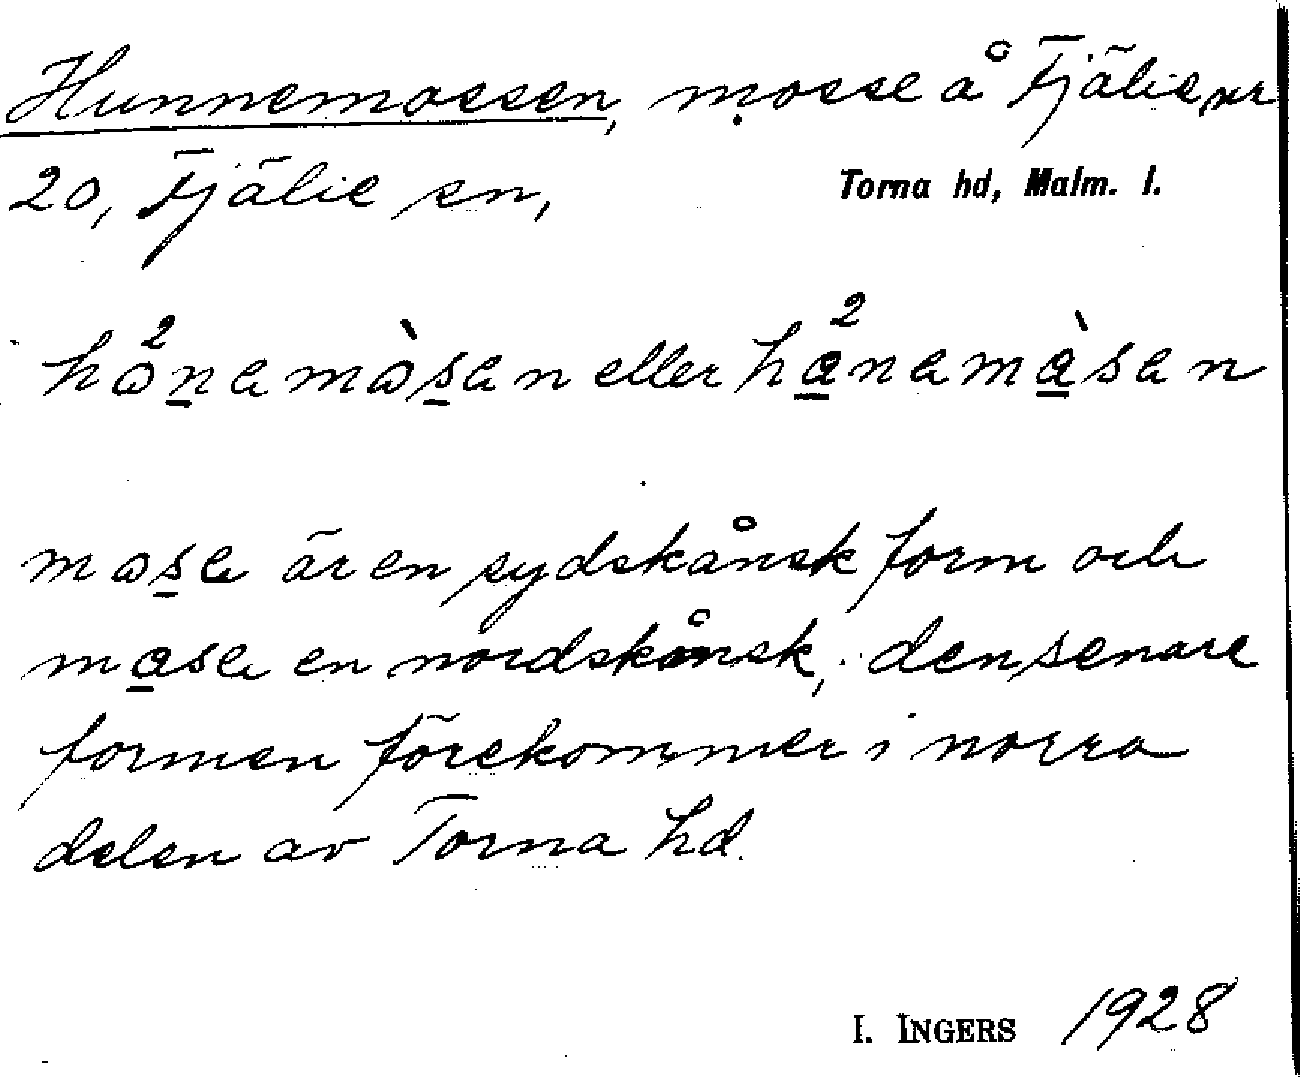 Hunnemossen, mosse å Fjälie nr
20, Fjälie sn,
Torna hd, Malm. l.
hɷ²namɷ̀san eller ha²namàsan
mɷsa är en sydskånsk form och
masa en nordskånsk, den senare
formen förekommer i norra
delen av Torna hd.
I. INGERS 1928